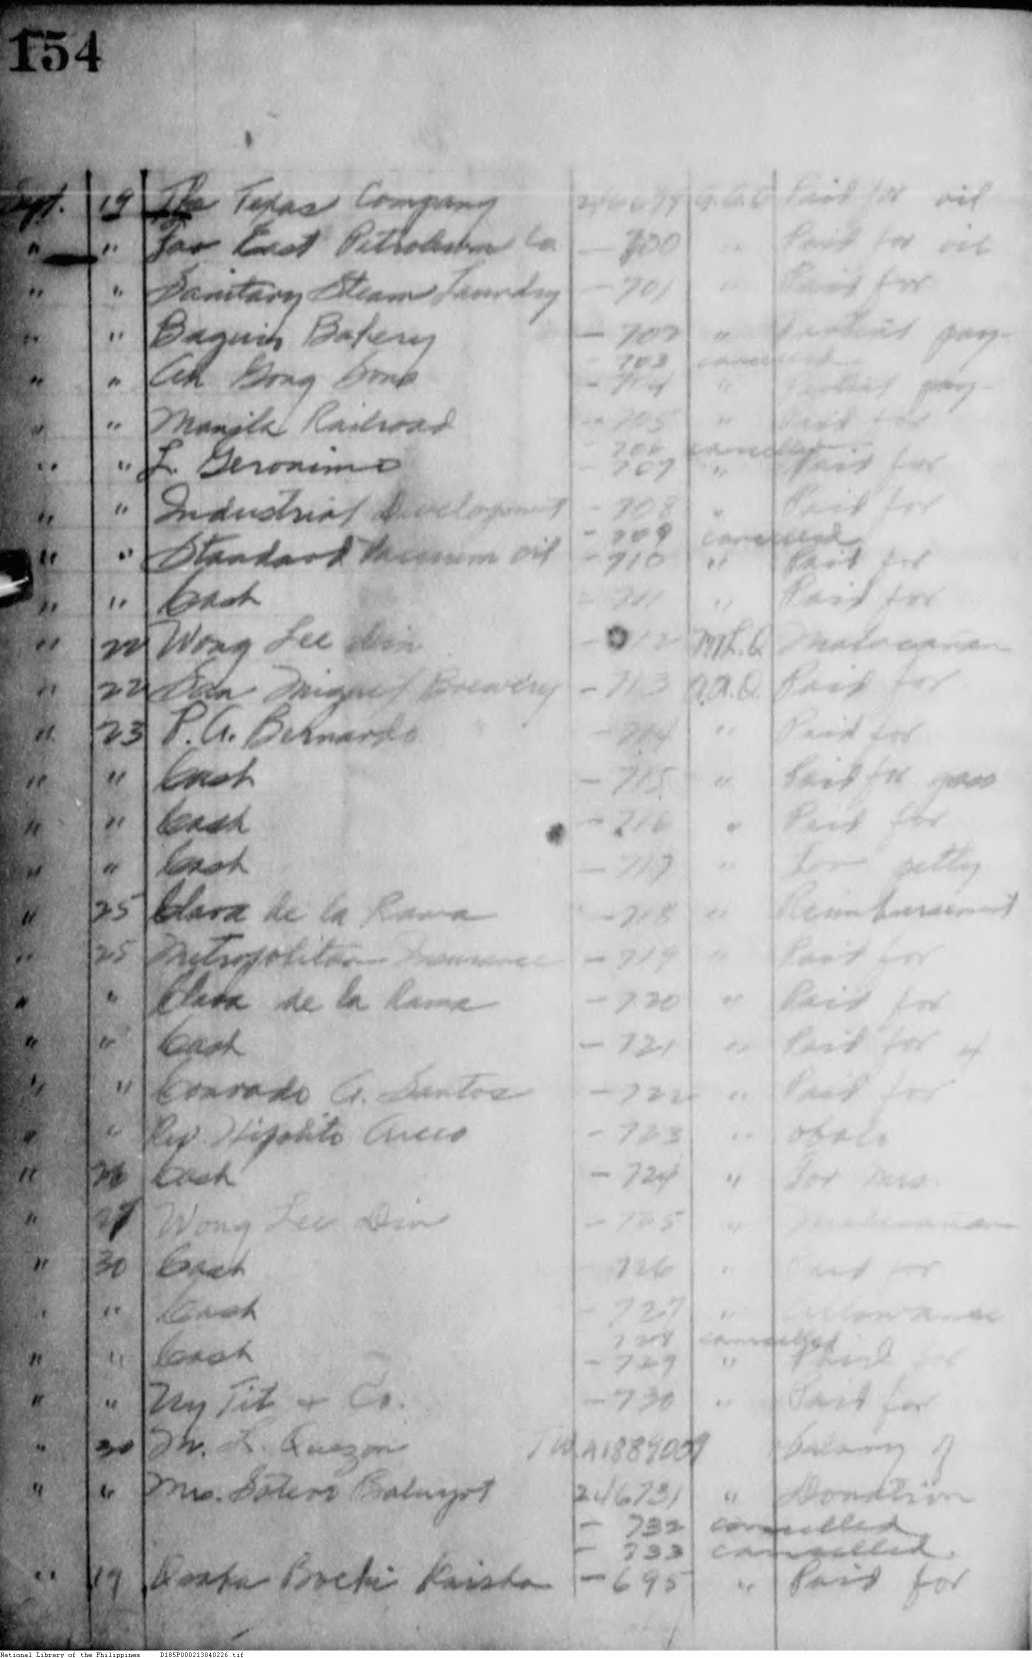 154
Sept. 19 The Texas Company 246699 A.A.Q Paid for oil
" " Far East Petroleum Co. - 700 " Paid for oil
" " Sanitary Steam Laundry - 701 " Paid for
" " Baguio Bakery - 702 " pay-
- 703 cancelled
" " Ah Gong Sons - 704 " pay-
" " Manila Railroad - 705 " Paid for
- 706 cancelled
" " L. Geronimo - 707 " Paid for
" " Industrial Development - 708 " Paid for
- 709 cancelled
" " Standard Vacuum oil - 710 " Paid for
" " Cash - 711 " Paid for
" 22 Wong Lee Din - 712 M.L.Q Malacañan
" 22 San Miguel Brewery - 713 A.A.Q. Paid for
" 23 P. A. Bernardo - 714 " Paid for
" " Cash - 715 " Paid for
" " Cash - 716 " Paid for
" " Cash - 717 " For petty
" 25 Clara de la Rama - 718 " Reimbursement
" 25 Metropolitan Insurance - 719 " Paid for
" " Clara de la Rama - 720 " Paid for
" " Cash - 721 " Paid for
" " Conrado A. Santos - 722 " Paid for
" " Rev. Hipolito - 723 "
" 26 Cash - 724 " For Mrs.
" 27 Wong Lee Din - 725 " Malacañan
" 30 Cash 726 " Paid for
" " Cash - 727 " Allowance
728 cancelled
" " Cash - 729 " Paid for
" " Uy Tit & Co. - 730 " Paid for
" 30 M. L. Quezon Salary of
" " Mrs. Sotero Baluyot 246731 " Donation
- 732 cancelled
- 733 cancelled.
" 19 Osaka Boeki Kaisha - 695 " Paid for
National Library of the Philippines D185P000213040226.tif